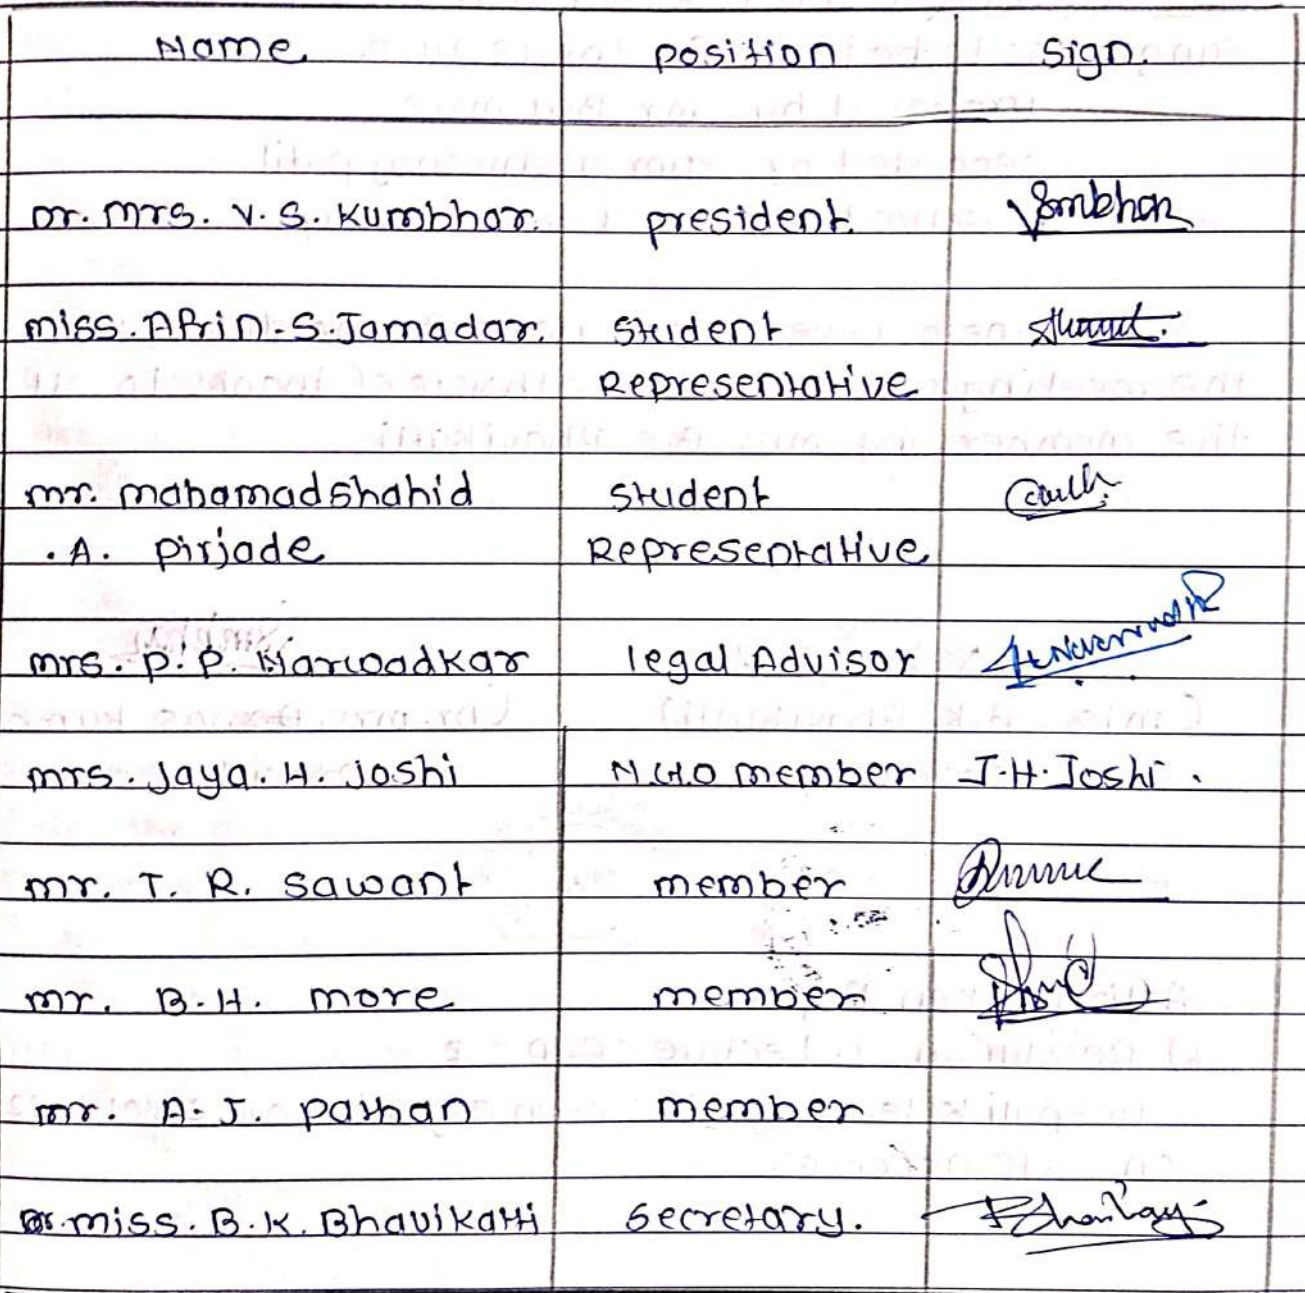 Name position Sign.
Dr. mrs. V. S. Kumbhar. president.
miss. Afrin. S. Jamadar. Student
Representative
mr. mahamadshahid Student
. A. pirjade Representative
mrs. P. P. Narwadkar legal Advisor
mrs. Jaya. H. Joshi N.G.O member J.H. Joshi .
mr. T. R. Sawant member
mr. B. H. more member
mr. A. J. pathan member
miss. B. K. Bhavikatti Secretary.